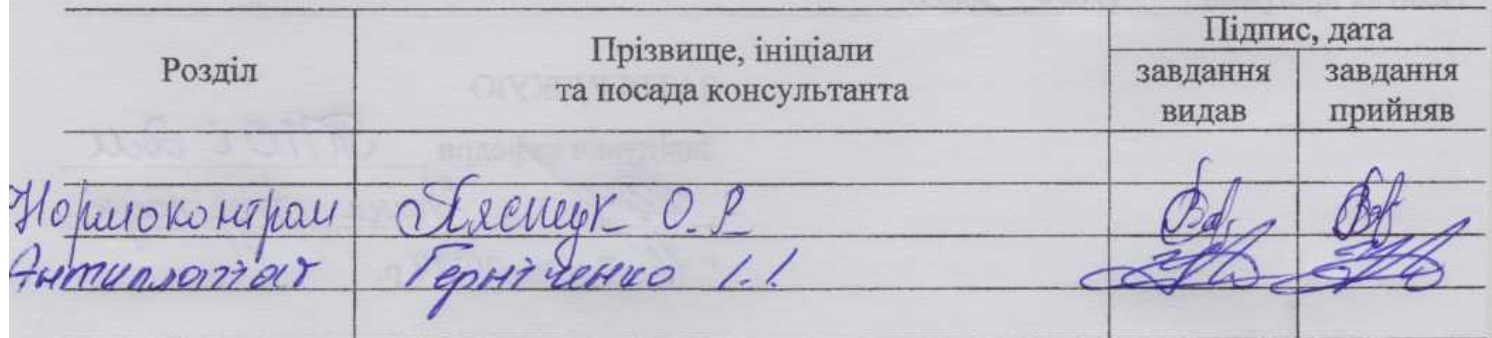 Розділ Прізвище, ініціали та посада консультанта Підпис, дата
завдання видав завдання прийняв
Нормоконтроль О.Р.
Антиплагіат Гернтченко І.І.